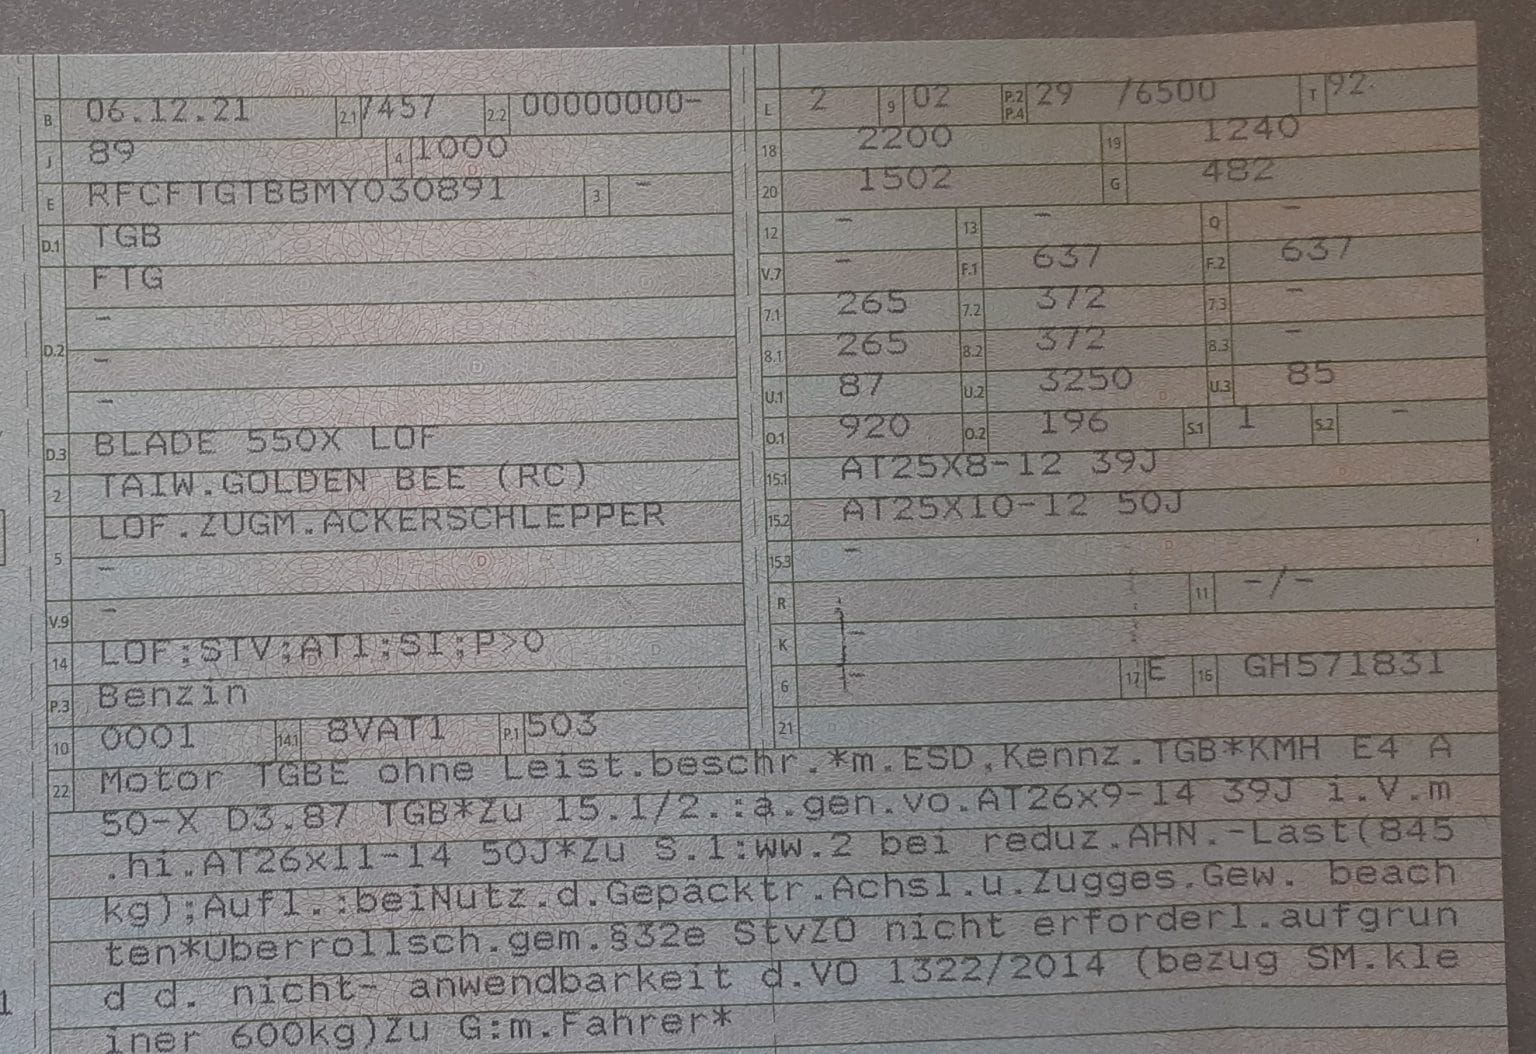 B 06.12.21 2.1 7457 2.2 00000000-
J 89 4 1000
E RFCFTGTBBMY030891 3 -
D.1 TGB
D.2 FTG
-
-
-
D.3 BLADE 550X LOF
2 TAIW.GOLDEN BEE (RC)
5 LOF.ZUGM.ACKERSCHLEPPER
-
V.9 -
14 LOF;STV;AT1;SI;P>0
P.3 Benzin
10 0001 14.1 8VAT1 P.1 503
L 2 9 02 P.2 P.4 29 /6500 T 92
18 2200 19 1240
20 1502 G 482
12 - 13 - Q -
V.7 - F.1 637 F.2 637
7.1 265 7.2 372 7.3 -
8.1 265 8.2 372 8.3 -
U.1 87 U.2 3250 U.3 85
O.1 920 O.2 196 S.1 1 S.2 -
15.1 AT25X8-12 39J
15.2 AT25X10-12 50J
15.3 -
R 11 -/-
K -
6 - 17 E 16 GH571831
21
22 Motor TGBE ohne Leist.beschr.*m.ESD,Kennz.TGB*KMH E4 A
50-X D3.87 TGB*Zu 15.1/2.:a.gen.vo.AT26x9-14 39J i.V.m
.hi.AT26x11-14 50J*Zu S.1:ww.2 bei reduz.AHN.-Last(845
kg);Aufl.:beiNutz.d.Gepäcktr.Achsl.u.Zugges.Gew. beach
ten*Überrollsch.gem.§32e StvZO nicht erforderl.aufgrun
d d. nicht- anwendbarkeit d.VO 1322/2014 (bezug SM.kle
iner 600kg)Zu G:m.Fahrer*